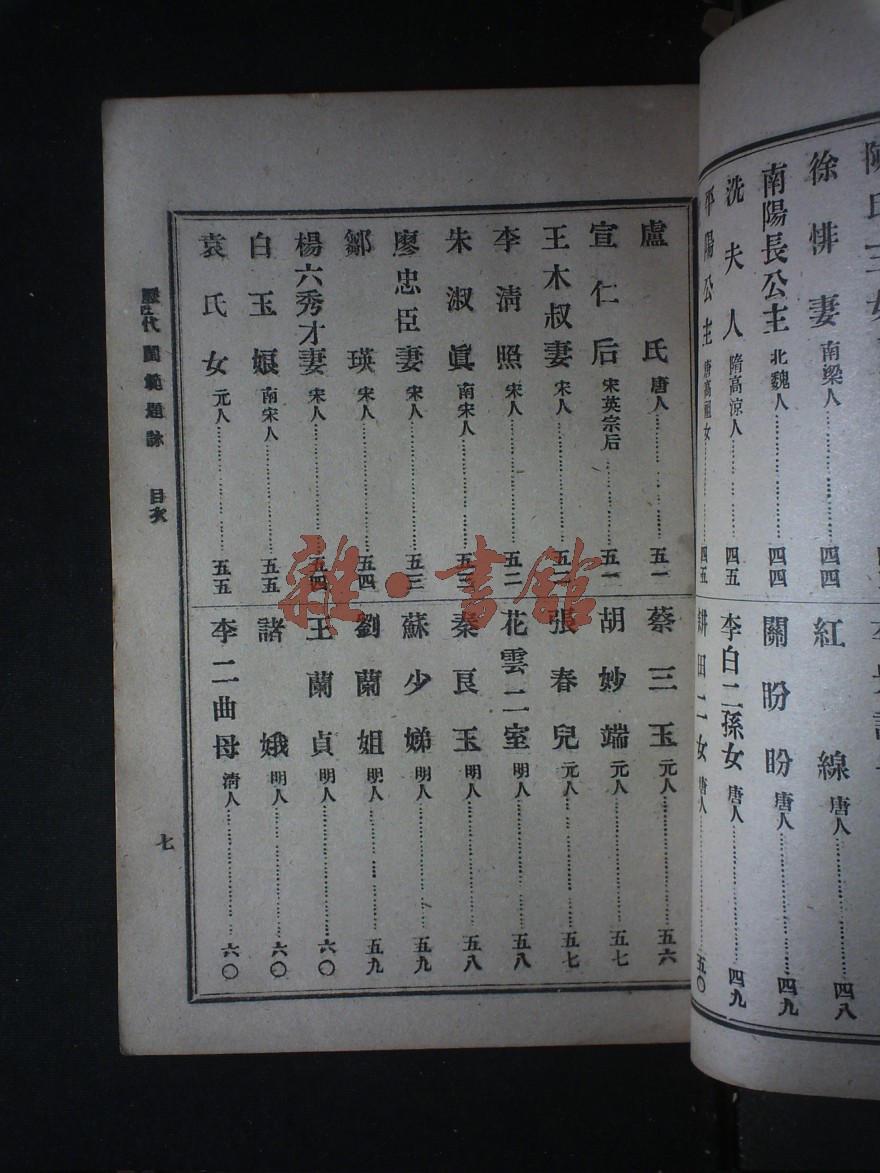 徐悱妻 南梁人 四四
南陽長公主 北魏人 四四
洗夫人 隋高涼人 四五
平陽公主 唐高祖女 四五
紅線 唐人 四八
關盼盼 唐人 四九
李白二孫女 唐人 四九
耕田二女 唐人 五〇
盧氏 唐人 五一
宣仁后 宋英宗后 五一
王木叔妻 宋人
李淸照 宋人 五二
朱淑眞 南宋人 五三
廖忠臣妻 宋人 五三
鄒瑛 宋人 五四
楊六秀才妻 宋人 五四
白玉娘 南宋人 五五
袁氏女 元人 五五
蔡三玉 元人 五六
胡妙端 元人 五七
張春兒 元人 五七
花雲二室 明人 五八
秦良玉 明人 五八
蘇少娣 明人 五九
劉蘭姐 明人 五九
王蘭貞 明人 六〇
諸娥 明人 六〇
李二曲母 淸人 六〇
歷代閨範題詠 目次
七
雜·書館